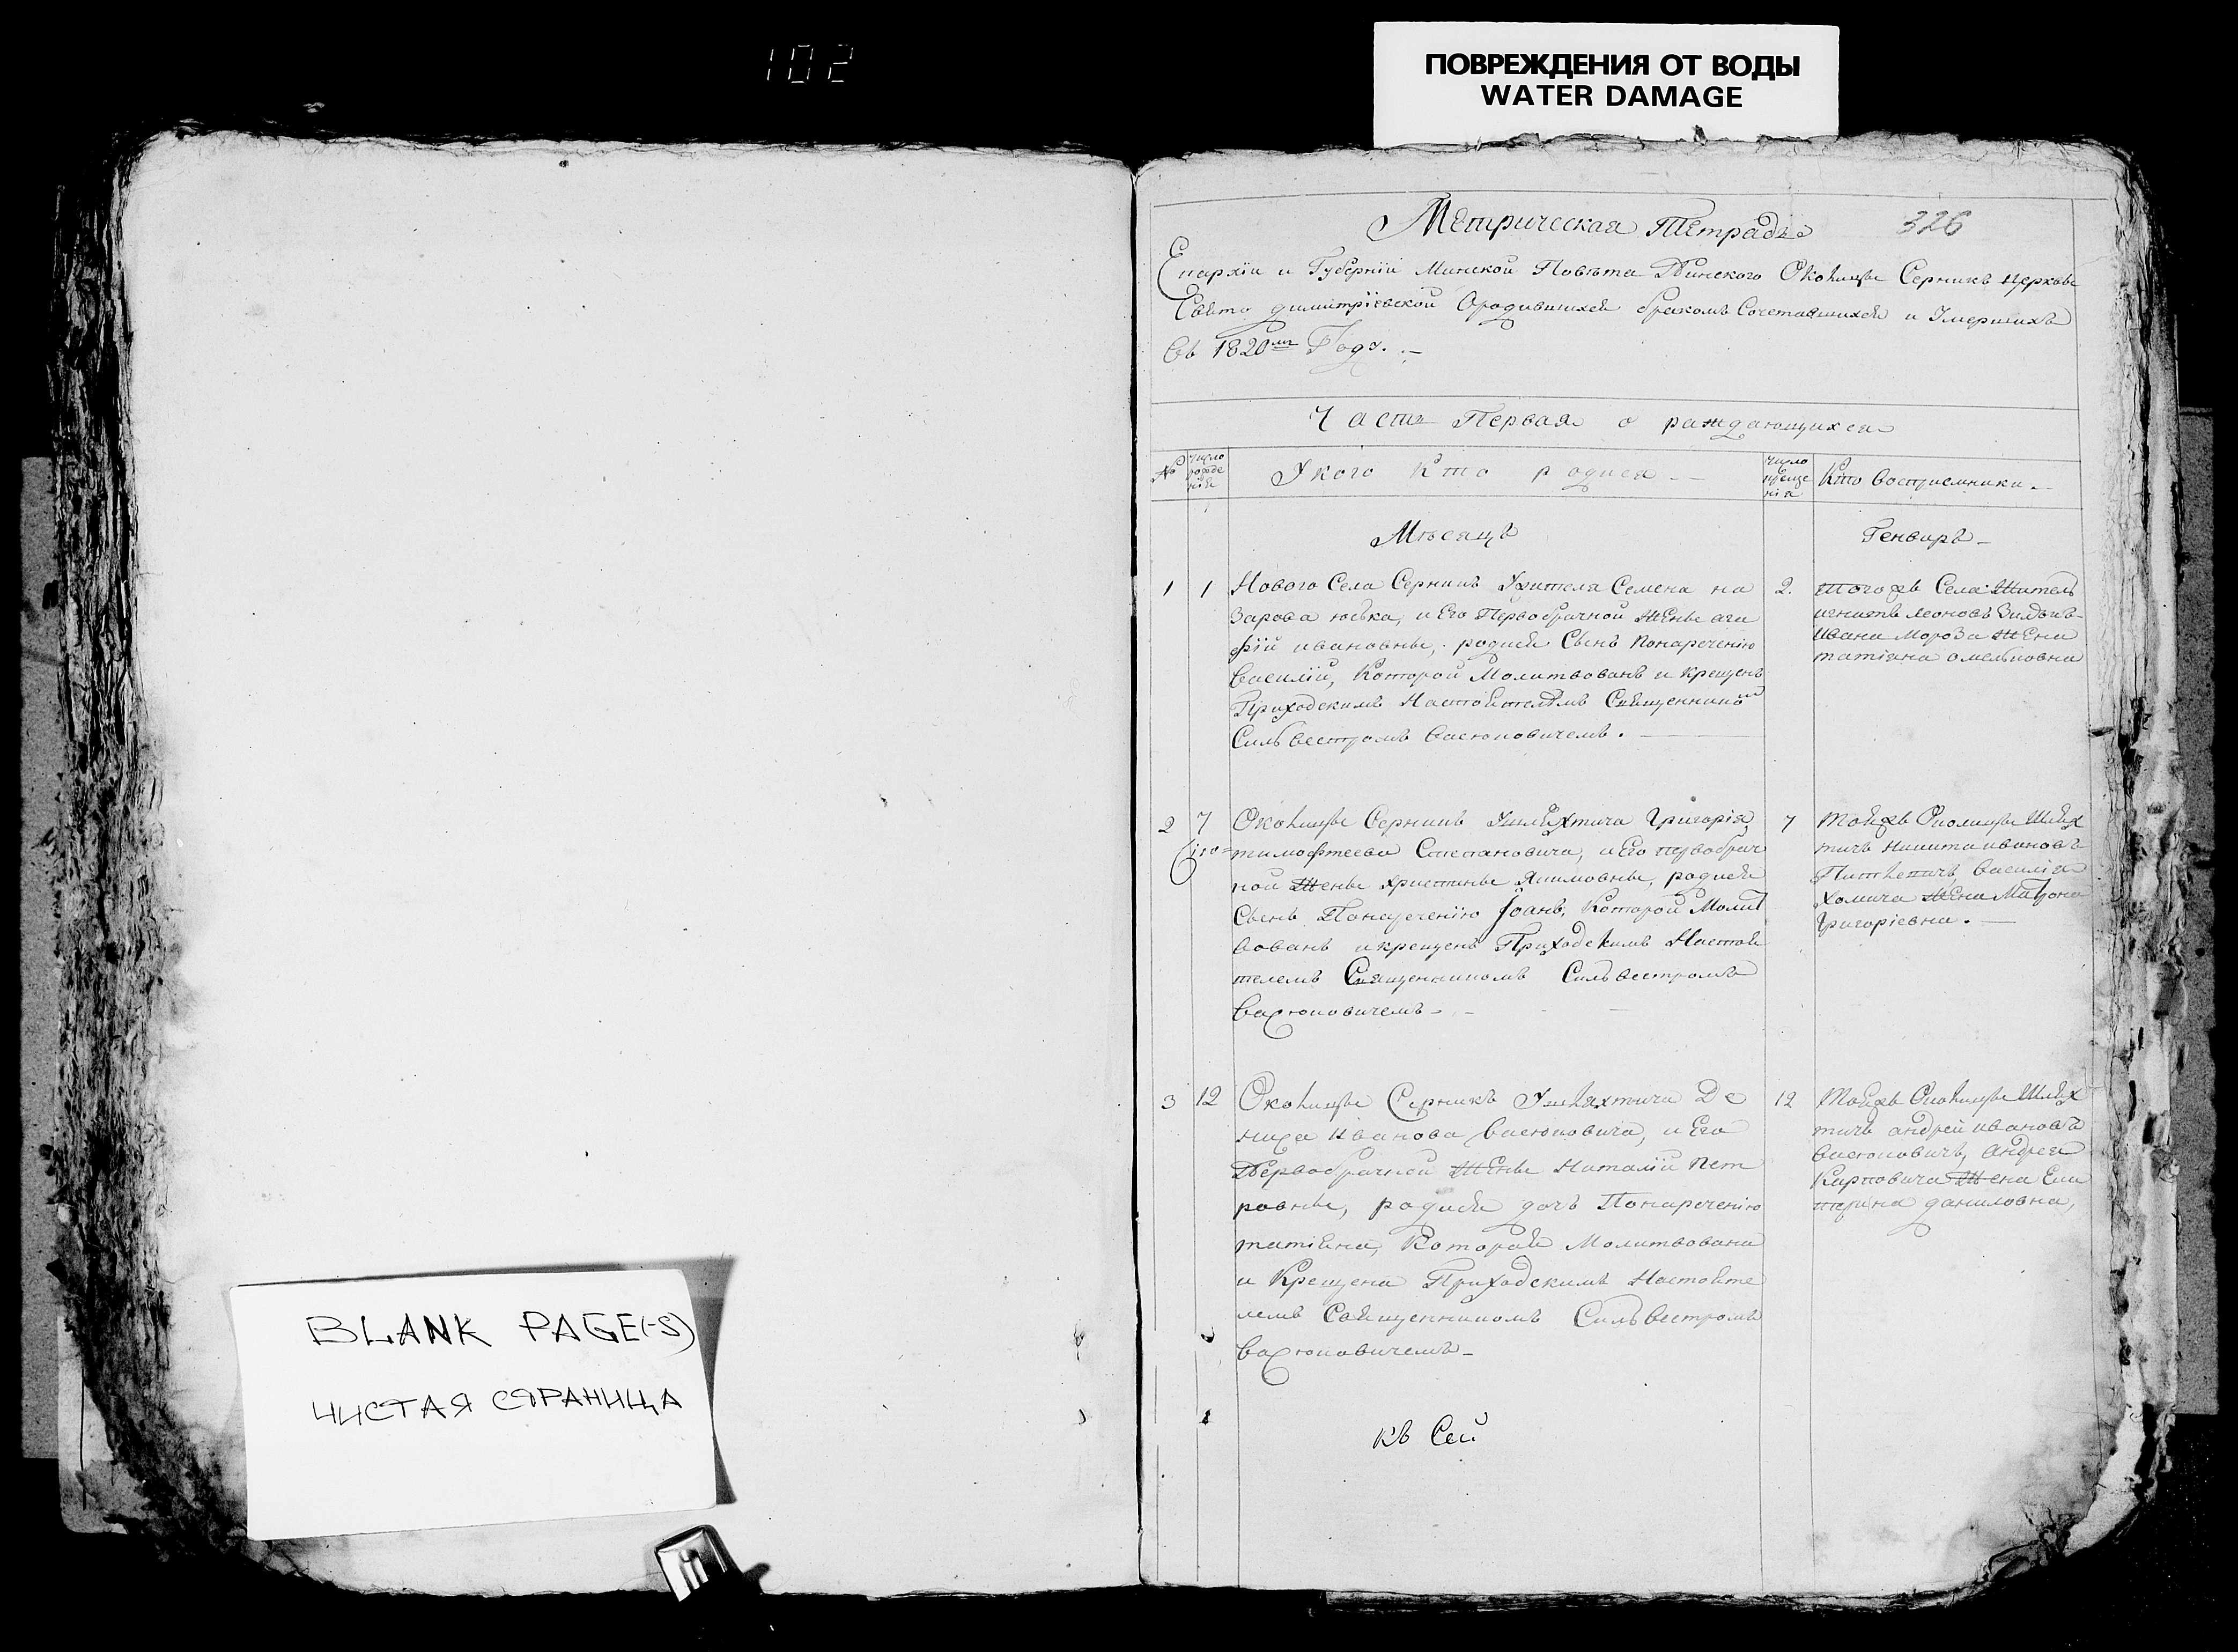 102
ПОВРЕЖДЕНИЯ ОТ ВОДЫ
WATER DAMAGE
Метрическая Тетрадь
326
Епархіи и Губерніи Минской Повѣта Пинского Околицы Серникъ церкове
Свято димитріевской Ородившихся бракомъ Сочетавшихся и Умершихъ
въ 1820мъ Году.
Часть Первая о раждающихся
№ Число рожде нія
У кого Кто родися
Число креще нія
Кто восприемники
Мѣсяцъ
Генваръ
1 1 Нового Села Серникъ Жителя Семена на
зарова юська, и Его Первобрачной Женѣ ага
фій ивановнѣ, родися Сынъ Понареченію
Василій, Которой Молитвованъ и крещенъ
Приходскимъ Настоятелемъ Священником
Сильвестромъ васюковичемъ.
2. Тогожъ Села Житель
игнатъ леоновъ
ивана мороза Жена
татіана омельковна
2 7 Околицы Серникъ Ушляхтича Григорія
тимофтеева Степановича, и Его первобрач
ной Женѣ христинѣ Якимовнѣ, родися
Сынъ Понареченію Іоанъ, Которой Молит
вованъ и крещенъ Приходскимъ Настоя
телемъ Священникомъ Сильвестромъ
васюковичемъ
7 Тояжъ Околицы Шлях
тичъ никита ивановъ
василія
хомича Жена Матрона
Григоріевна.
3 12 Околицы Серникъ Ушляхтича Де
ниса иванова васюковича, и Его
Первобрачной Женѣ Наталіи Пет
ровнѣ, родися дочъ Понареченію
татіяна, Которая Молитвована
и Крещена Приходскимъ Настояте
лемъ Священникомъ Сильвестромъ
васюковичемъ
12 Тояжъ Околицы Шлях
тичъ андрей ивановъ
васюковичъ, андрея
Карповича Жена Ека
терина даниловна,
къ Сей
BLANK PAGE(-S)
ЧИСТАЯ СТРАНИЦА